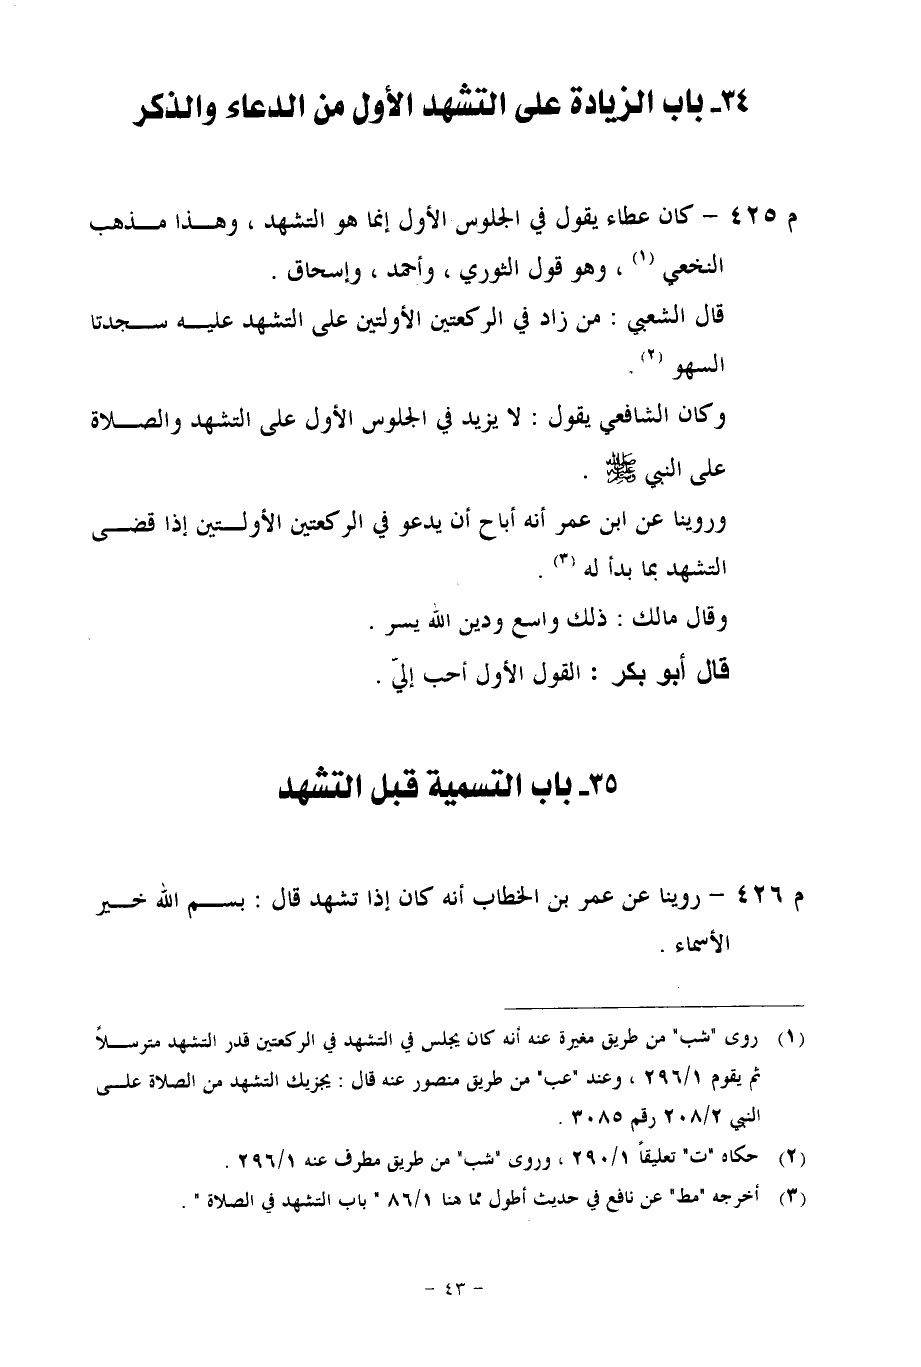 ٣٤ـ باب الزيادة على التشهد الأول من الدعاء والذكر
م ٤٢٥ – كان عطاء يقول في الجلوس الأول إنما هو التشهد ، وهـــذا مـــذهب
النخعي (١) ، وهو قول الثوري ، وأحمد ، وإسحاق .
قال الشعبي : من زاد في الركعتين الأولتين على التشهد عليـــه ســـجدتا
السهو (٢) .
وكان الشافعي يقول : لا يزيد في الجلوس الأول على التشهد والصـــلاة
على النبي ﷺ .
وروينا عن ابن عمر أنه أباح أن يدعو في الركعتين الأولـــتين إذا قضـــى
التشهد بما بدأ له (٣) .
وقال مالك : ذلك واسع ودين الله يسر .
قال أبو بكر : القول الأول أحب إليّ .
٣٥ـ باب التسمية قبل التشهد
م ٤٢٦ – روينا عن عمر بن الخطاب أنه كان إذا تشهد قال : بســـم الله خـــير
الأسماء .
(١) روى "شب" من طريق مغيرة عنه أنه كان يجلس في التشهد في الركعتين قدر التشهد مترســـلاً
ثم يقوم ٢٩٦/١ ، وعند "عب" من طريق منصور عنه قال : يجزيك التشهد من الصلاة علـــى
النبي ٢٠٨/٢ رقم ٣٠٨٥ .
(٢) حكاه "ت" تعليقاً ٢٩٠/١ ، وروى "شب" من طريق مطرف عنه ٢٩٦/١ .
(٣) أخرجه "مط" عن نافع في حديث أطول مما هنا ٨٦/١ " باب التشهد في الصلاة " .
- ٤٣ -